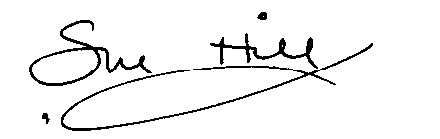 Sue Hill